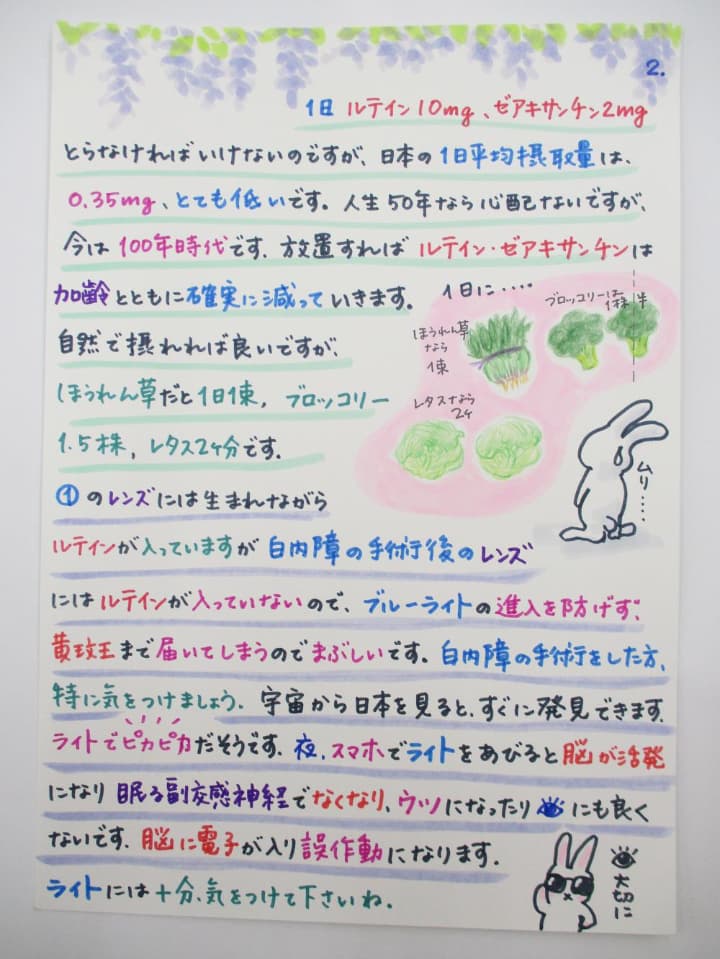 2.
1日 ルテイン10mg、ゼアキサンチン2mg
とらなければいけないのですが、日本の1日平均摂取量は、
0.35mg、とても低いです。人生50年なら心配ないですが、
今は100年時代です。放置すれば ルテイン・ゼアキサンチンは
加齢とともに確実に減っていきます。
自然で摂れれば良いですが、
ほうれん草だと1日1束, ブロッコリー
1.5株, レタス2ヶ分です。
1日に‥‥
ブロッコリーは1株半
ほうれん草
なら
1束
レタスなら
2ヶ
ムリ‥‥
①のレンズには生まれながら
ルテインが入っていますが 白内障の手術後のレンズ
にはルテインが入っていないので、ブルーライトの進入を防げず、
黄玟王まで届いてしまうのでまぶしいです。白内障の手術をした方、
特に気をつけましょう。宇宙から日本を見ると、すぐに発見できます。
ライトでピカピカだそうです。夜、スマホでライトをあびると脳が活発
になり 眠る副交感神経でなくなり、ウツになったり にも良く
ないです。脳に電子が入り誤作動になります。
ライトには十分、気をつけて下さいね。
大切に